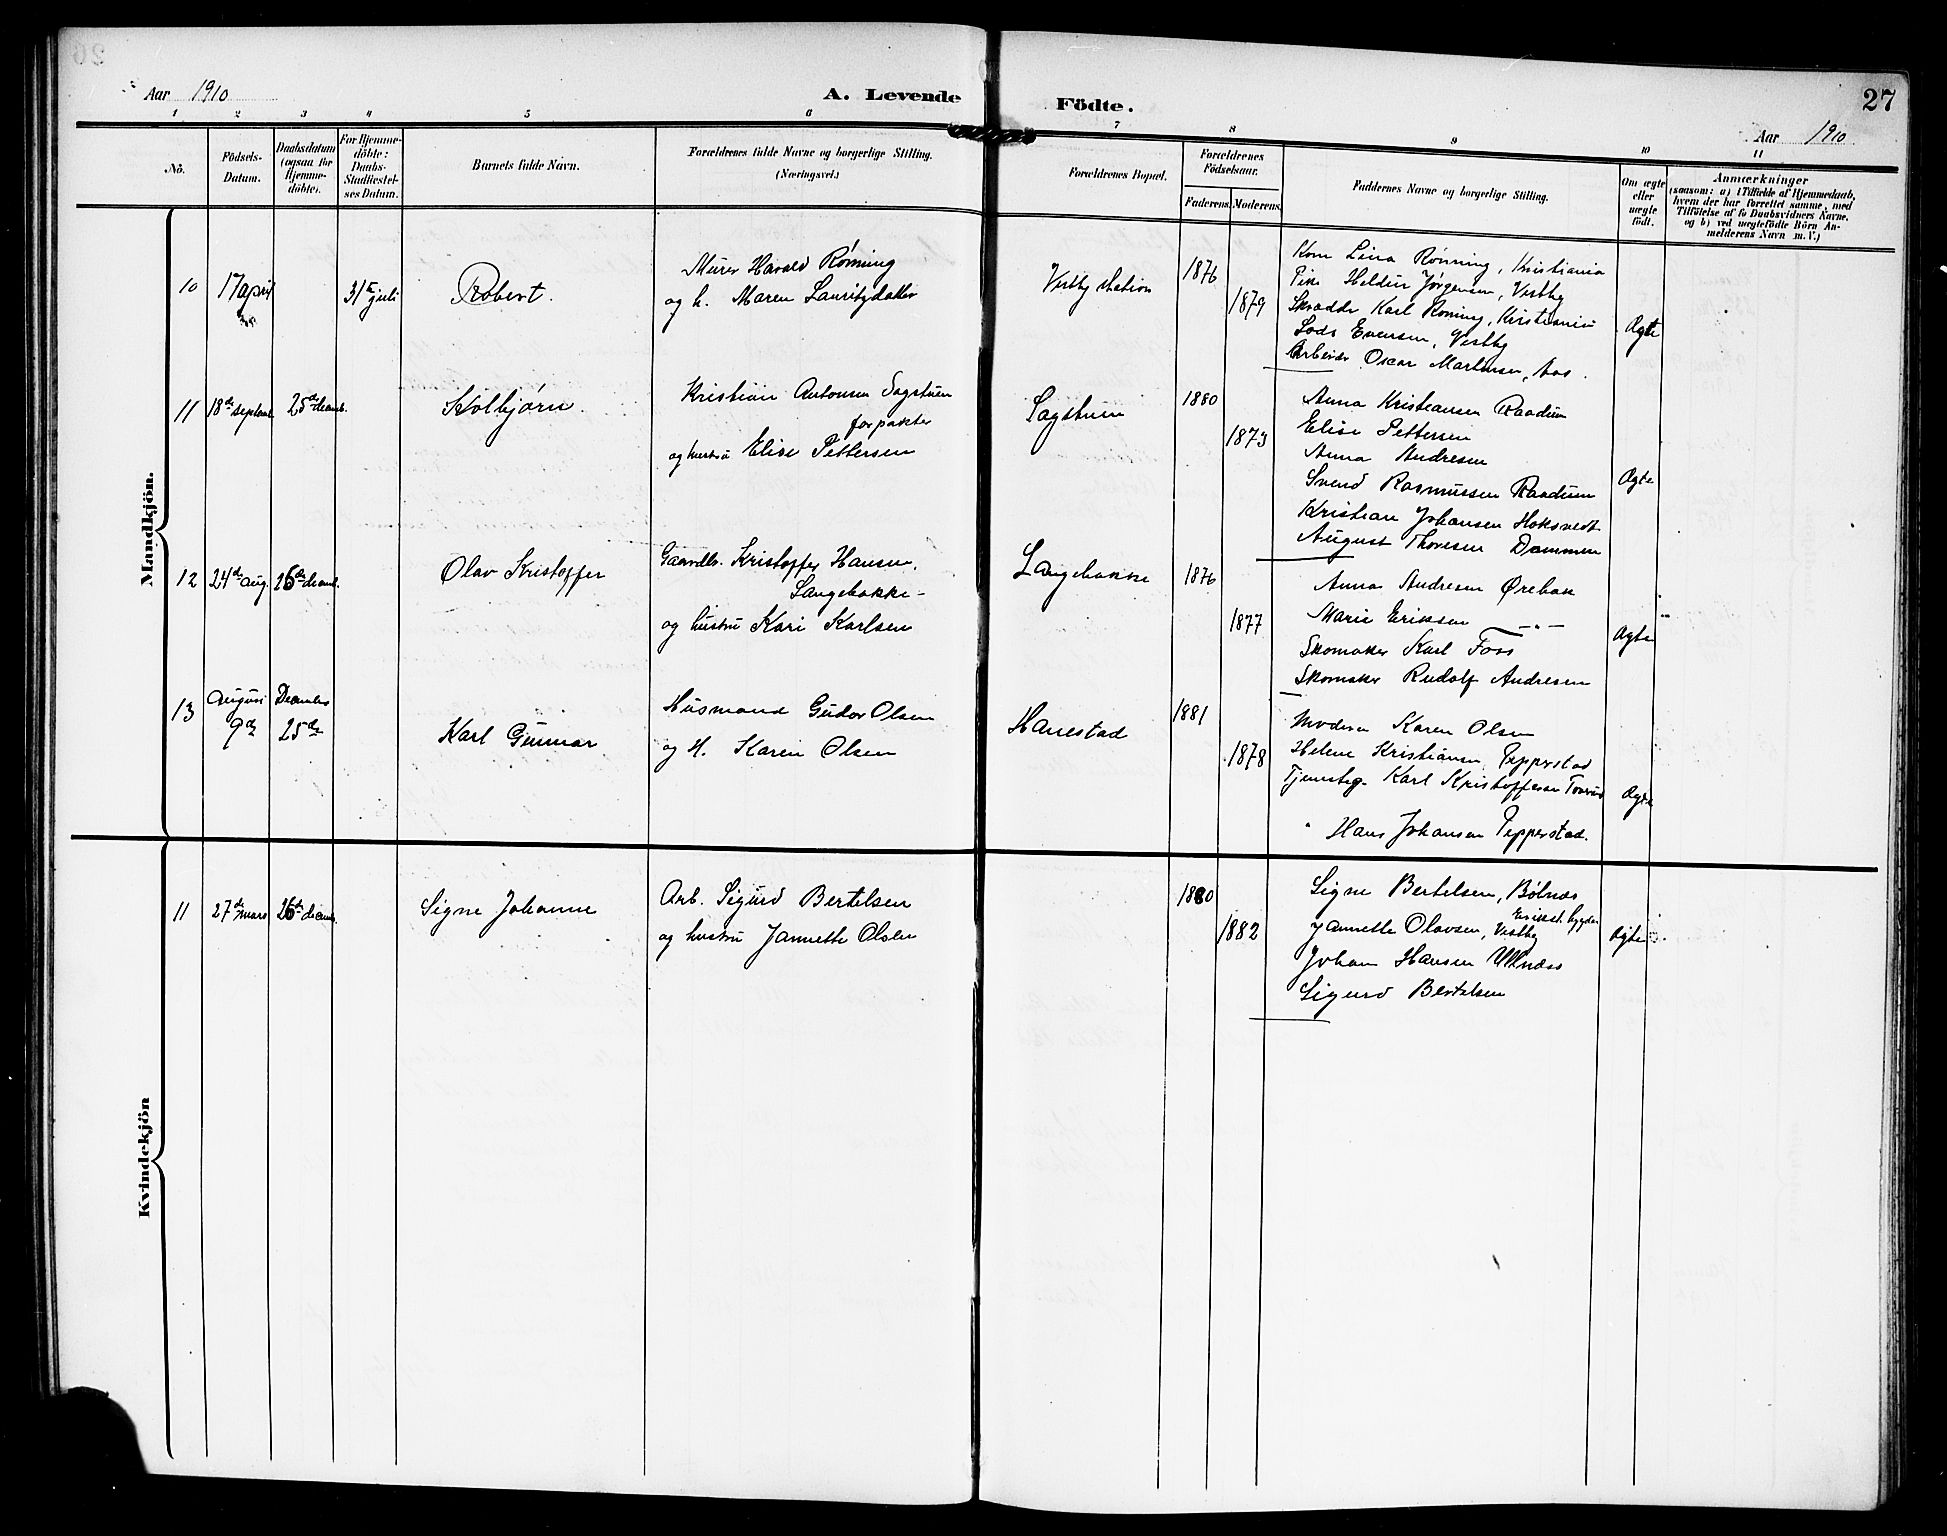 Aar 1910
A. Levende
Födte.
27
Aar 1910
1 2 3 4 5 6 7 8 9 10 11
No.
Födsels-
Datum.
Daabsdatum
(ogsaa for
Hjemme-
döbte).
For Hjemme-
döbte:
Daabs-
Stadfæstel-
ses Datum.
Barnets fulde Navn.
Forældrenes fulde Navne og borgerlige Stilling.
(Næringsvei.)
Forældrenes Bopæl.
Forældrenes
Födselsaar.
Faderens. Moderens.
Faddernes Navne og borgerlige Stilling.
Om ægte
eller
uægte
födt.
Anmærkninger
(saasom: a) i Tilfælde af Hjemmedaab,
hvem der har forrettet samme, med
Tilföielse af to Daabsvidners Navne,
og b) ved uægtefödte Börn An-
melderens Navn m. V.)
Mandkjön.
10
17 april
31te juli
Robert.
Murer Harald Rønning
og h. Maren Lauritzdatter
Vestby station
1876
1879
Kone Lina Rønning, Kristiania
Pike Heldur Jørgensen, Vestby
Skrædder Karl Rønning, Kristiania
Lods Evensen, Vestby
Arbeider Oscar Martinsen, Aas.
Ægte
11
18de septemb.
25de decemb.
Kolbjørn.
Kristian Antonsen Sagstuen
forpakter
og hustru Elise Pettersen
Sagstuen
1880
1873
Anna Kristiansen Raadum
Elise Pettersen
Anna Andresen
Svend Rasmussen Raadum
Kristian Johansen Hoksvedt
August Thoresen Dammen
Ægte
12
24de aug.
26de decemb.
Olav Kristoffer
Gaardbr. Kristoffer Hansen,
Langebakke
og hustru Kari Karlsen
Langebakke
1876
1877
Anna Andresen Ørebak
Marie Eriksen —"—
Skomaker Karl Foss
Skomaker Rudolf Andresen
Ægte
13
August
9de
December
25de
Karl Gunnar
Husmand Gudor Olsen
og H. Karen Olsen
Hanestad
1881
1878
Moderen Karen Olsen
Helene Kristiansen, Pepperstad
Tjenesteg. Karl Kristoffersen
" Hans Johansen Pepperstad.
Ægte
Kvindekjön
11
27de mars
26de decemb.
Signe Johanne
Arb. Sigurd Bertelsen
og hustru Jannette Olsen
1880
1882
Signe Bertelsen, Bølnæs
Jannette Olavsen, Vestby
Johan Hansen
Sigurd Bertelsen
Ægte